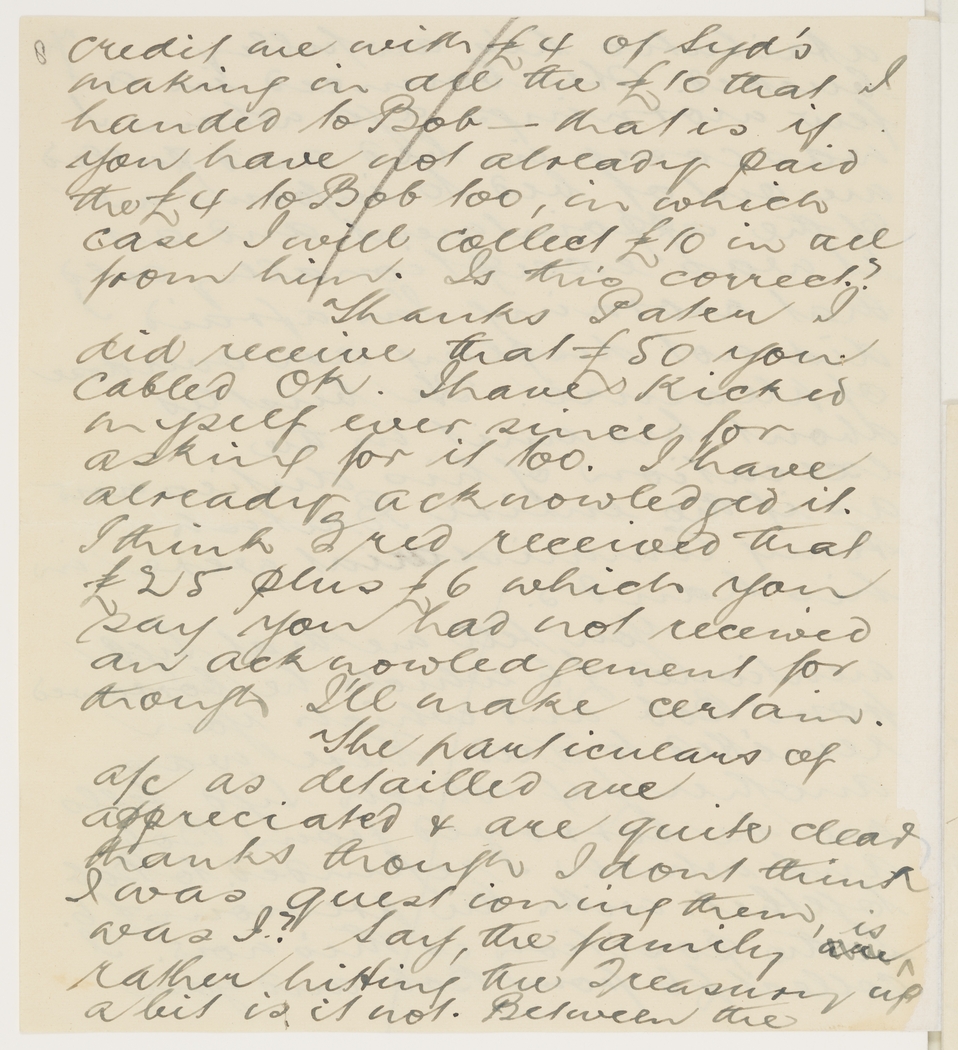 8 credit me with £4 of Syd's
making in all the £10 that I
handed to Bob — that is if
you have not already paid
the £4 to Bob too, in which
case I will collect £10 in all
from him. Is this correct.?
Thanks Pater I
did receive that £50 you
cabled OK. I have kicked
myself ever since for
asking for it too. I have
already acknowledged it.
I think Fred received that
£25 plus £6 which you
say you had not received
an acknowledgement for
though I'll make certain.
The particulars of
a/c as detailled are
appreciated & are quite clear
thanks though I dont think
I was questioning them,
was I.? Say, the family is
rather hitting the Treasury up
a bit is it not. Between the